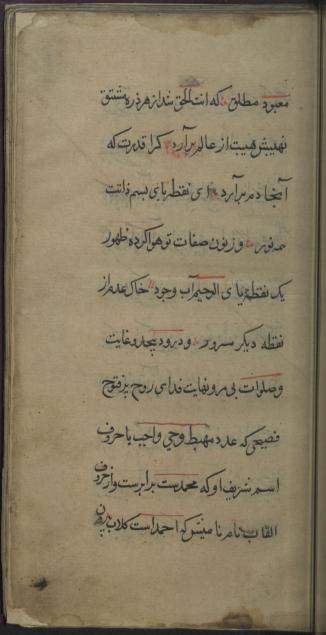 معبود مطلق که انت الحق شد از هر ذره مشتق
نهیبش هیبت از عالم برآرد کرا قدرت که
آنجا دم برآرد ای نقطه بای بسم ذاتت
مه نور وز نون صفات تو هوا کرده ظهور
یک نقطه ز یای الرحیم آب وجود خاک عدم از
نقطه دیگر سرور و درود بیحد و غایت
وصلوات بی مر و نهایت فدای روح پر فتوح
فصیحی که عدد مهبط وحی واجب با حروف
اسم شریف او که محمدست برابرست و از حروف
القاب نام نامیش که احمد است کلاب